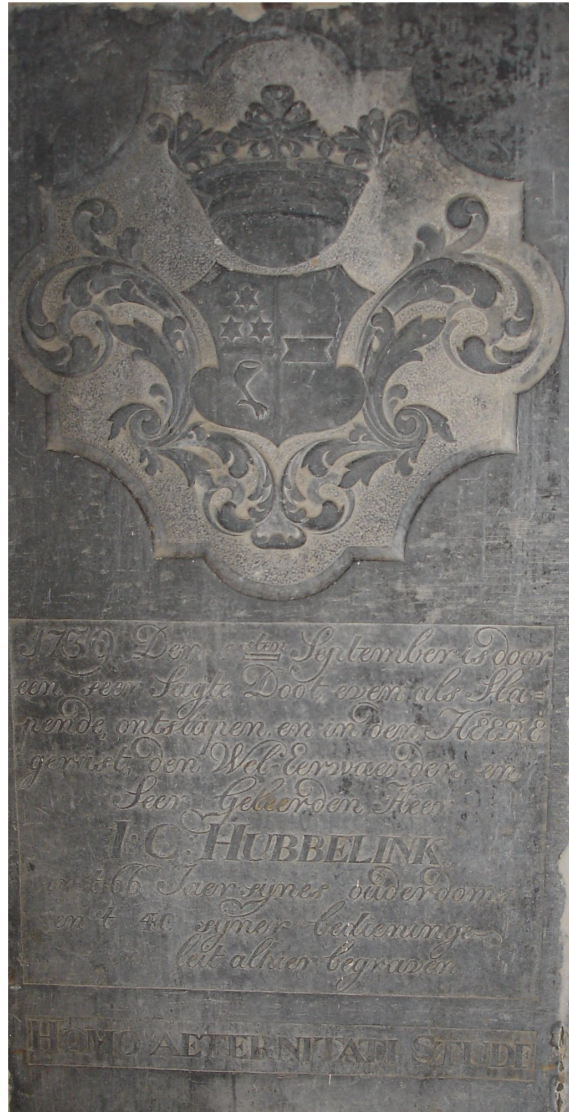 Den September is door
een seer Sagte Doot, even als Sla=
pende, ontslapen, en in den HEERE
gerust, den Wel-Eerwaerden, en
Seer Geleerden Heer
I: C: HUBBELINK
in t 66 Jaer synes ouderdoms
en t 40 syner bedieninge
leit alhier begraven
HOMO AETERNITATI STUDE